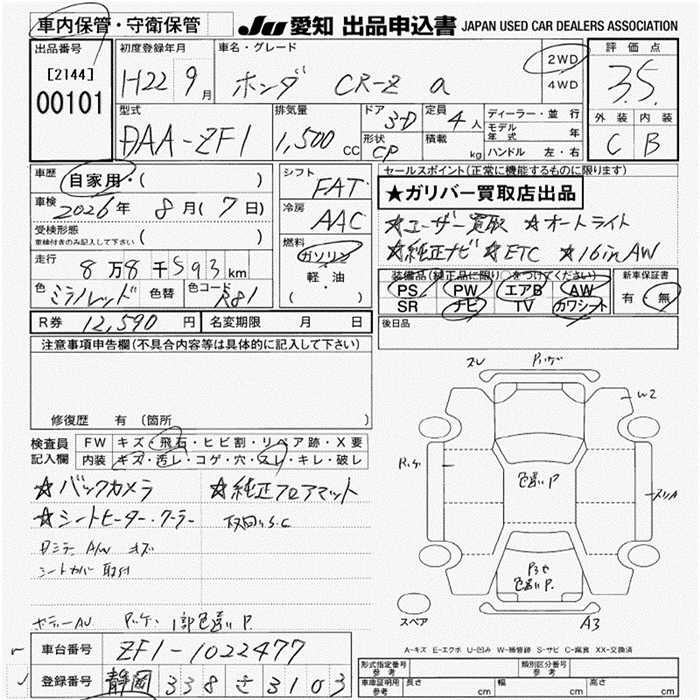 車内保管・守衛保管 JU 愛知 出品申込書 JAPAN USED CAR DEALERS ASSOCIATION
出品番号 初度登録年月 車名・グレード 評価点
[2144]
00101
H22 9月 ホンダ CR-Z α 2WD 4WD 3.5
型式 排気量 ドア 3-D 定員 4人 ディーラー・並行 外装 内装
DAA-ZF1 1,500 CC 形状 CP 積載 kg モデル年式 年 C B
ハンドル 左・右
車歴 自家用・( ) シフト FAT セールスポイント(正常に機能するものに限ります)
★ガリバー買取店出品
車検 2026年 8月(7日) 冷房 AAC
☆ユーザー買取 ☆オートライト
受検形態 車検付きのみ記入して下さい ( ) 燃料 ガソリン 軽・油 ( )
☆純正ナビ ☆ETC ☆16inAW
走行 8万8千593km
装備品(純正品に限り○をつけてください) 新車保証書
PS PW エアB AW 有・無
SR ナビ TV カワシート
色 ミラノレッド 色替 色コード R81
後日品
R券 12,590円 名変期限 月 日
注意事項申告欄(不具合内容等は具体的に記入して下さい)
修復歴 有 (箇所
検査員記入欄 FW キズ・飛石・ヒビ割・リペア跡・X要
内装 キズ・汚レ・コゲ・穴・スレ・キレ・破レ
☆バックカメラ ☆純正フロアマット
☆シートヒーター・クーラー
シートカバー 取付
W2
色違いP
スリA
色違いP.
A3
スペア
1部色違いP.
A-キズ E-エクボ U-凹み W-補修跡 S-サビ C-腐食 XX-交換済
車台番号 ZF1-1022477
登録番号 静岡 338 さ 3103
形式指定番号 参考 類別区分番号 参考
車庫証明用 参考 長さ cm 幅 cm 高さ cm